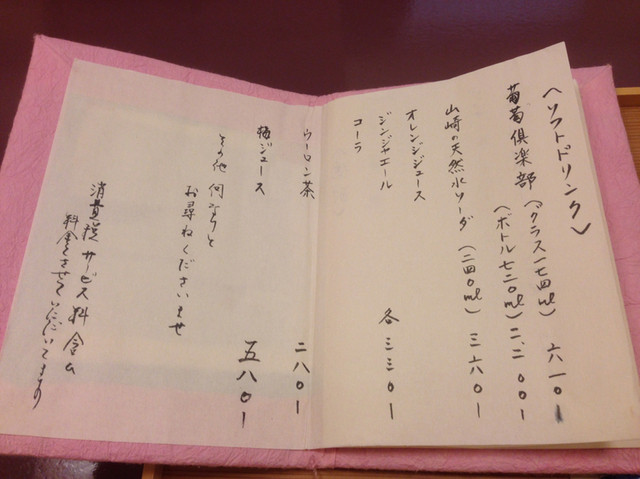 〈ソフトドリンク〉
葡萄倶楽部（グラス一七四ml）六一〇ー
（ボトル七二〇ml）二、二〇〇ー
山崎の天然水ソーダ（二四〇ml）三六〇ー
オレンジジュース
ジンジャエール 各三三〇ー
コーラ
ウーロン茶 二八〇ー
梅ジュース 五八〇ー
その他 何なりと
お尋ねくださいませ
消費税 サービス料含ム
料金とさせていただいてます